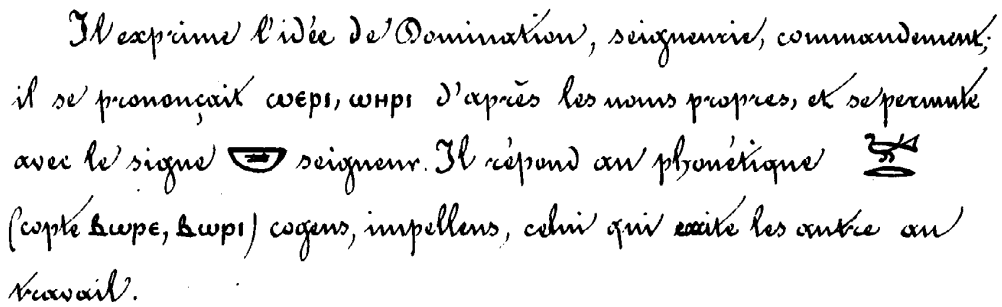 Il exprime l'idée de Domination, seigneurie, commandement;
il se prononçait ⲱⲉⲣⲓ, ⲱⲏⲣⲓ d'après les noms propres, et se permute
avec le signe 𓎟 seigneur. Il répond au phonétique
(copte ⲃⲱⲣⲉ, ⲃⲱⲣⲓ) cogens, impellens, celui qui exite les autre au
travail.